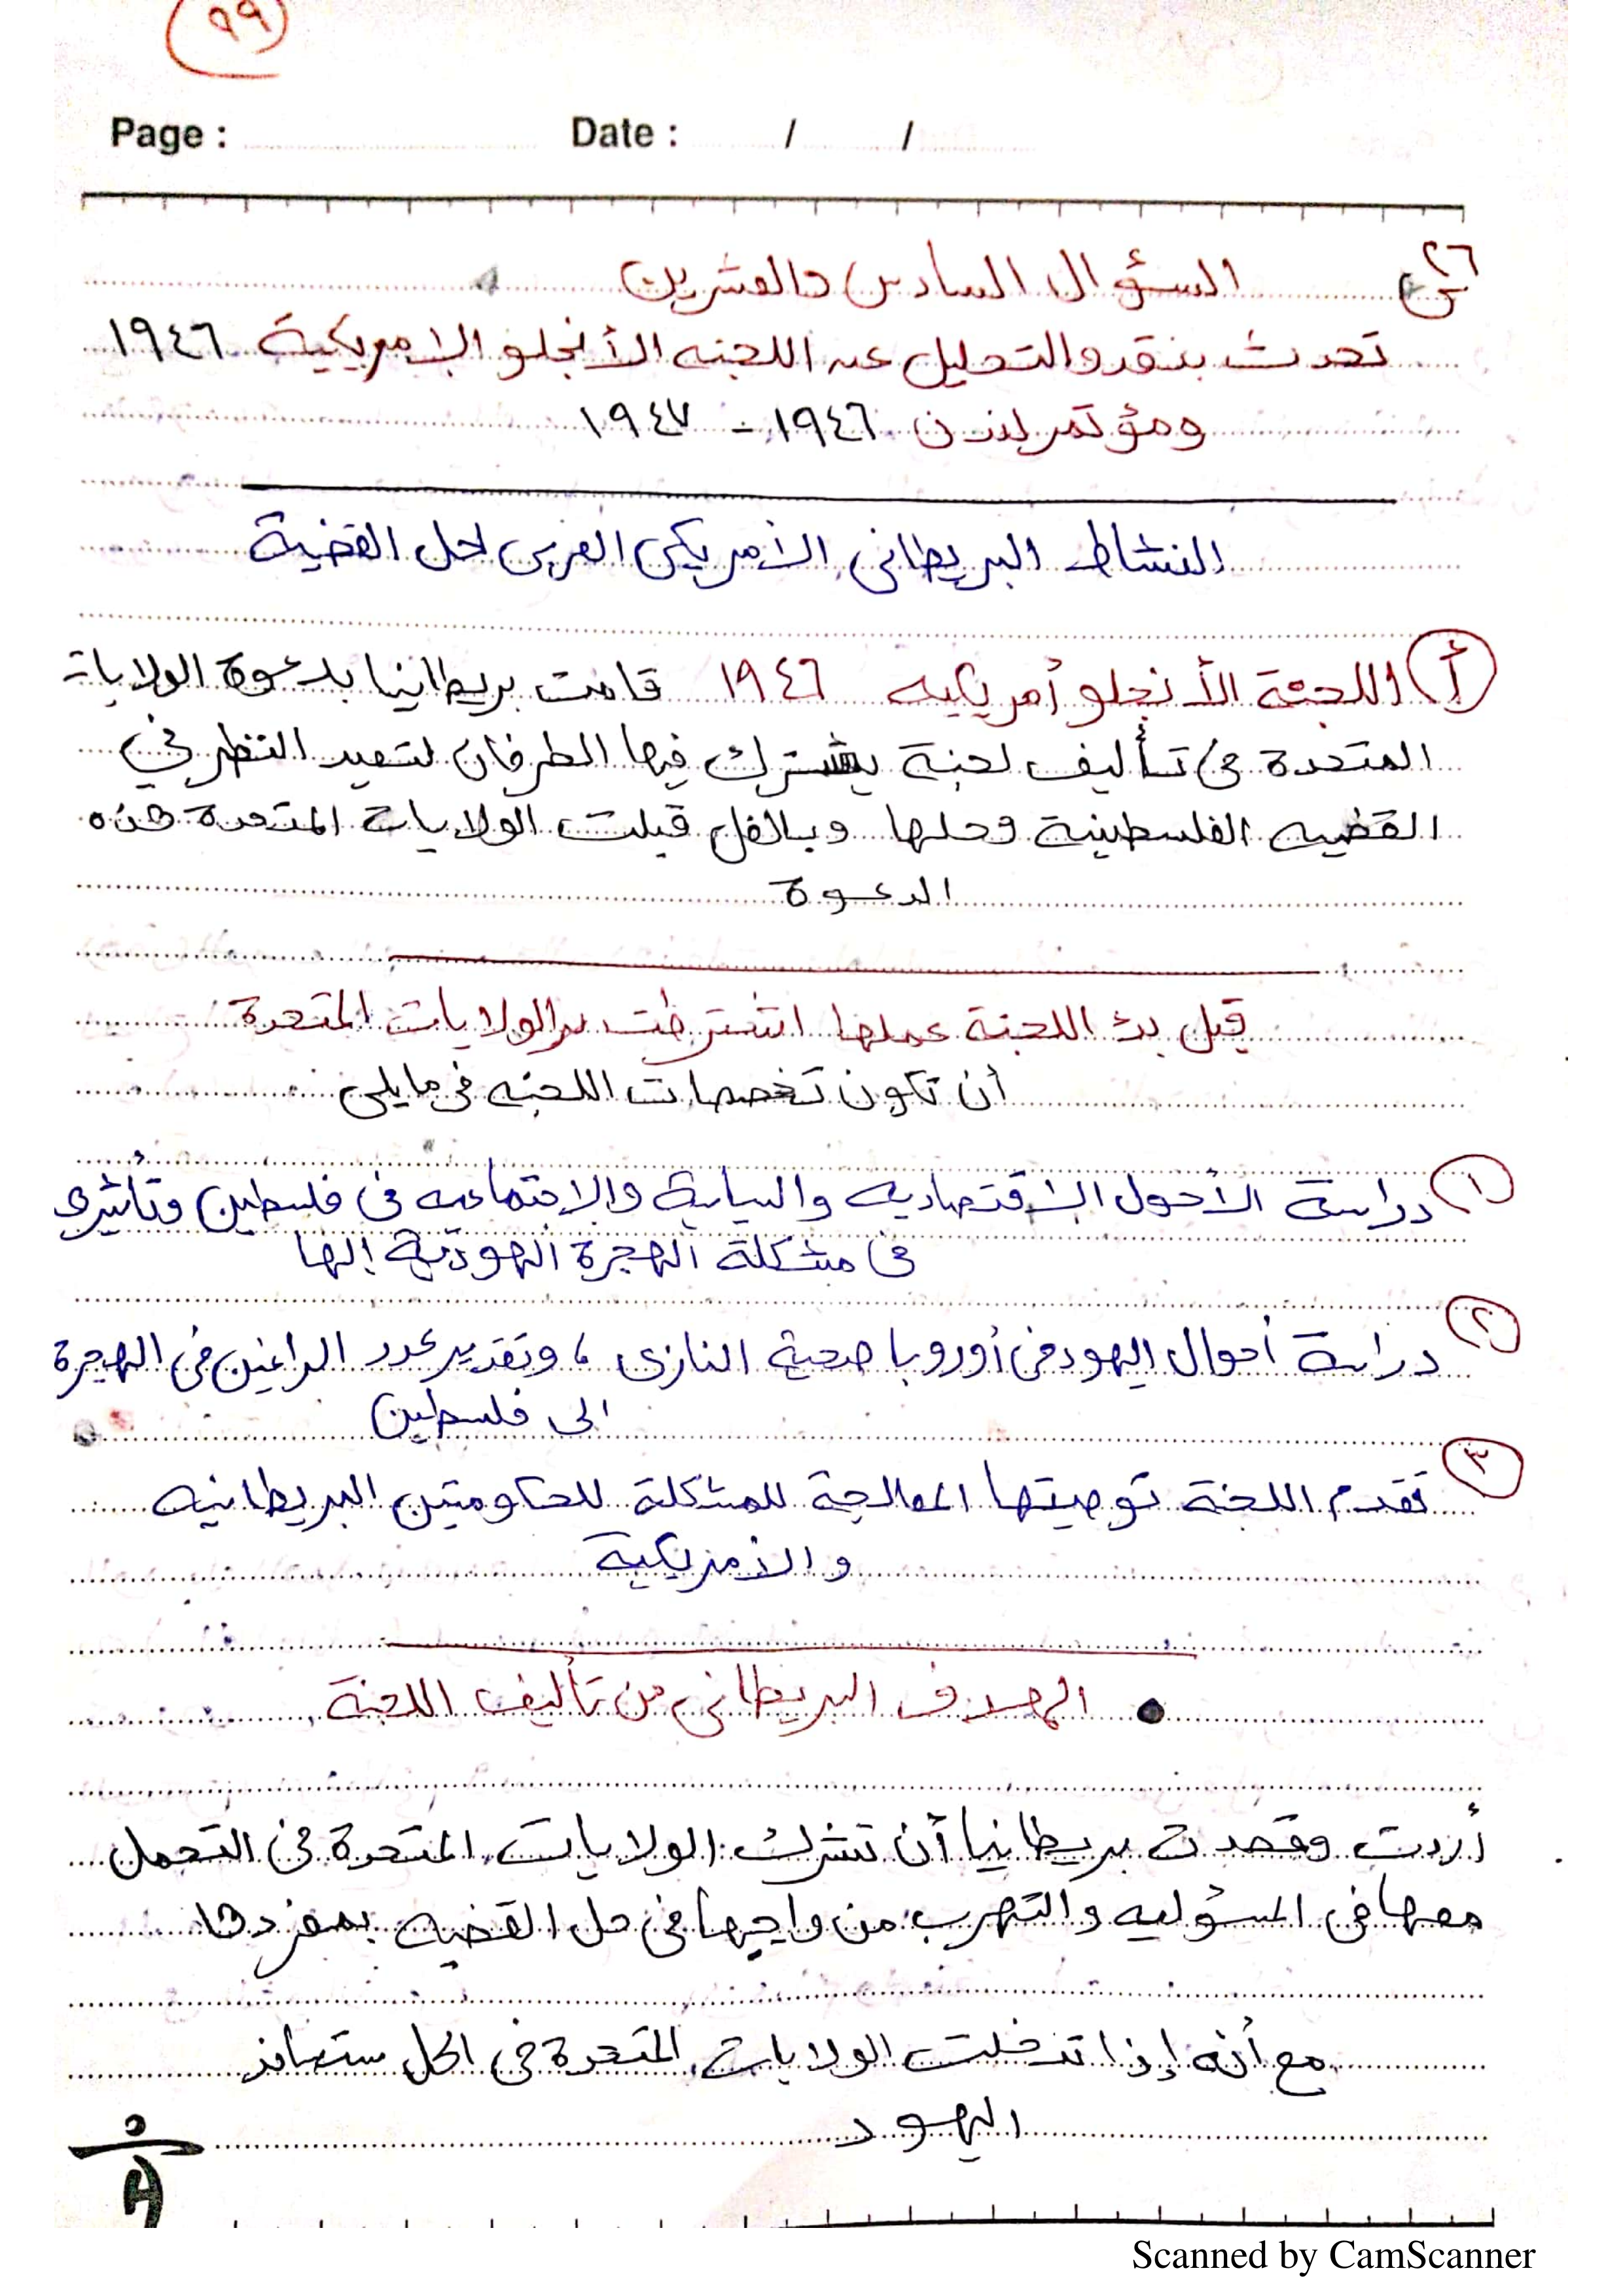 ٩٩
Page : Date : / /
س٢٦ السؤال السادس والعشرين
تحدث بنقد والتحليل عن اللجنه الأنجلو الإمريكية ١٩٤٦
ومؤتمر لندن ١٩٤٦ - ١٩٤٧
النشاط البريطانى الأمريكى العربى لحل القضية
أ اللجنة الأنجلو أمريكيه ١٩٤٦ قامت بريطانيا بدعوة الولايات
المتحدة فى تأليف لجنة يشترك فيها الطرفان لتعيد النظر في
القضيه الفلسطينية وحلها وبالفل قبلت الولايات المتحدة هذه
الدعوة
قبل بدئ اللجنة عملها اشترطت الولايات المتحدة
أن تكون تخصصات اللجنه فى مايلى
١ دراسة الأحول الاقتصاديه والسياية والاجتماعيه فى فلسطين وتأثيرى
فى مشكلة الهجرة اليهودية إلها
٢ دراسة أحوال اليهود فى أوروبا ضحية النازى ، وتقدير عدد الراغبين فى الهجرة
الى فلسطين
٣ تقدم اللجنة توصيتها المعالجة للمشكلة للحكومتين البريطانيه
والأمريكية
• الهدف البريطانى من تأليف اللجنة
أردت وقصدت بريطانيا أن تشرك الولايات المتحدة فى التحمل
معها فى المسؤليه والتهرب من واجبها فى حل القضيه بمفردها
مع أنه إذا تدخلت الولايات المتحدة فى الحل ستحاذ
اليهود
Scanned by CamScanner